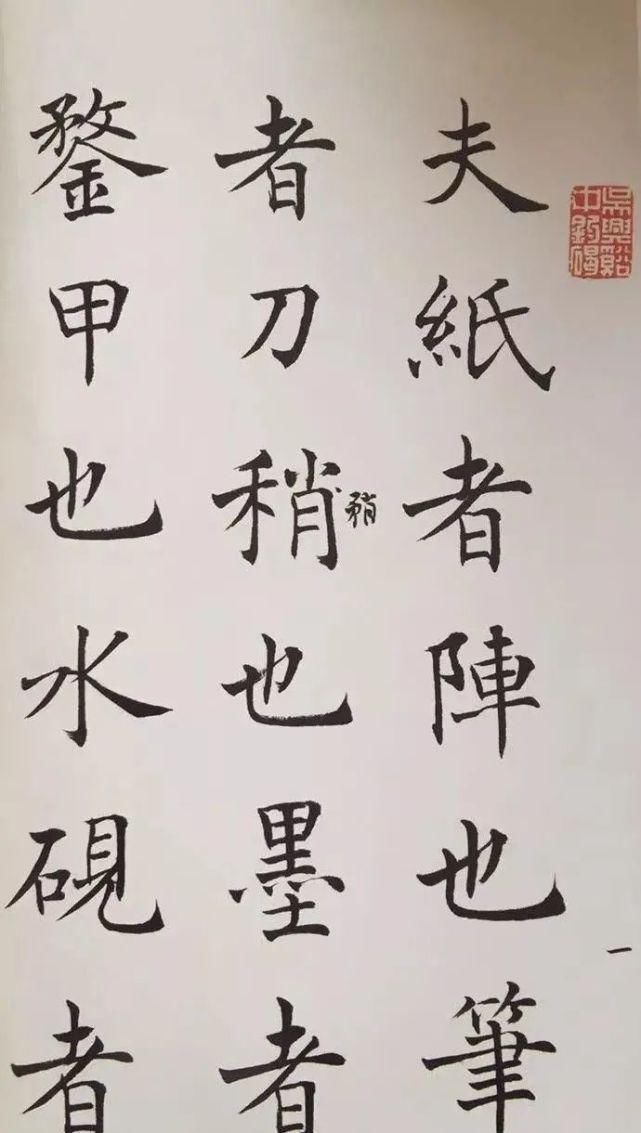 夫紙者陣也筆
者刀稍也墨者
矟
鍪甲也水硯者
一